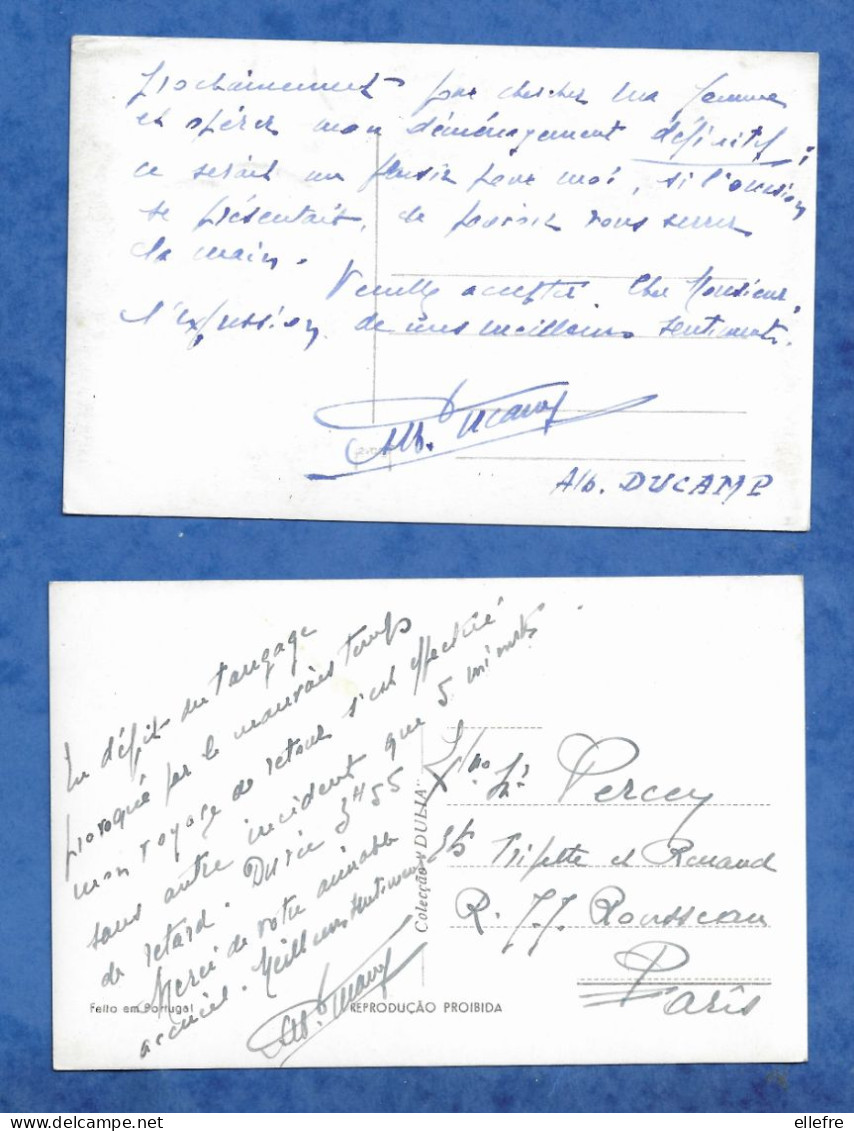 prochainement pour chercher ma femme
et opérer mon déménagement définitif ;
ce serait un plaisir pour moi, si l'occasion
se présentait, de pouvoir vous serrer
la main.
Veuillez accepter, Cher Monsieur,
l'expression de mes meilleurs sentiments.
Alb. Ducamp
Alb. DUCAMP
En dépit du tangage
provoqué par le mauvais temps
mon voyage de retour s'est effectué
sans autre incident que 5 minutes
de retard. Durée 3H55
Merci de votre aimable
accueil. Meilleurs sentiments
Alb. Ducamp
Feito em Portugal
Colecção "DULIA"
REPRODUÇÃO PROIBIDA
Percey
Ets Tripette et Renaud
R. J.J. Rousseau
Paris
ellefre